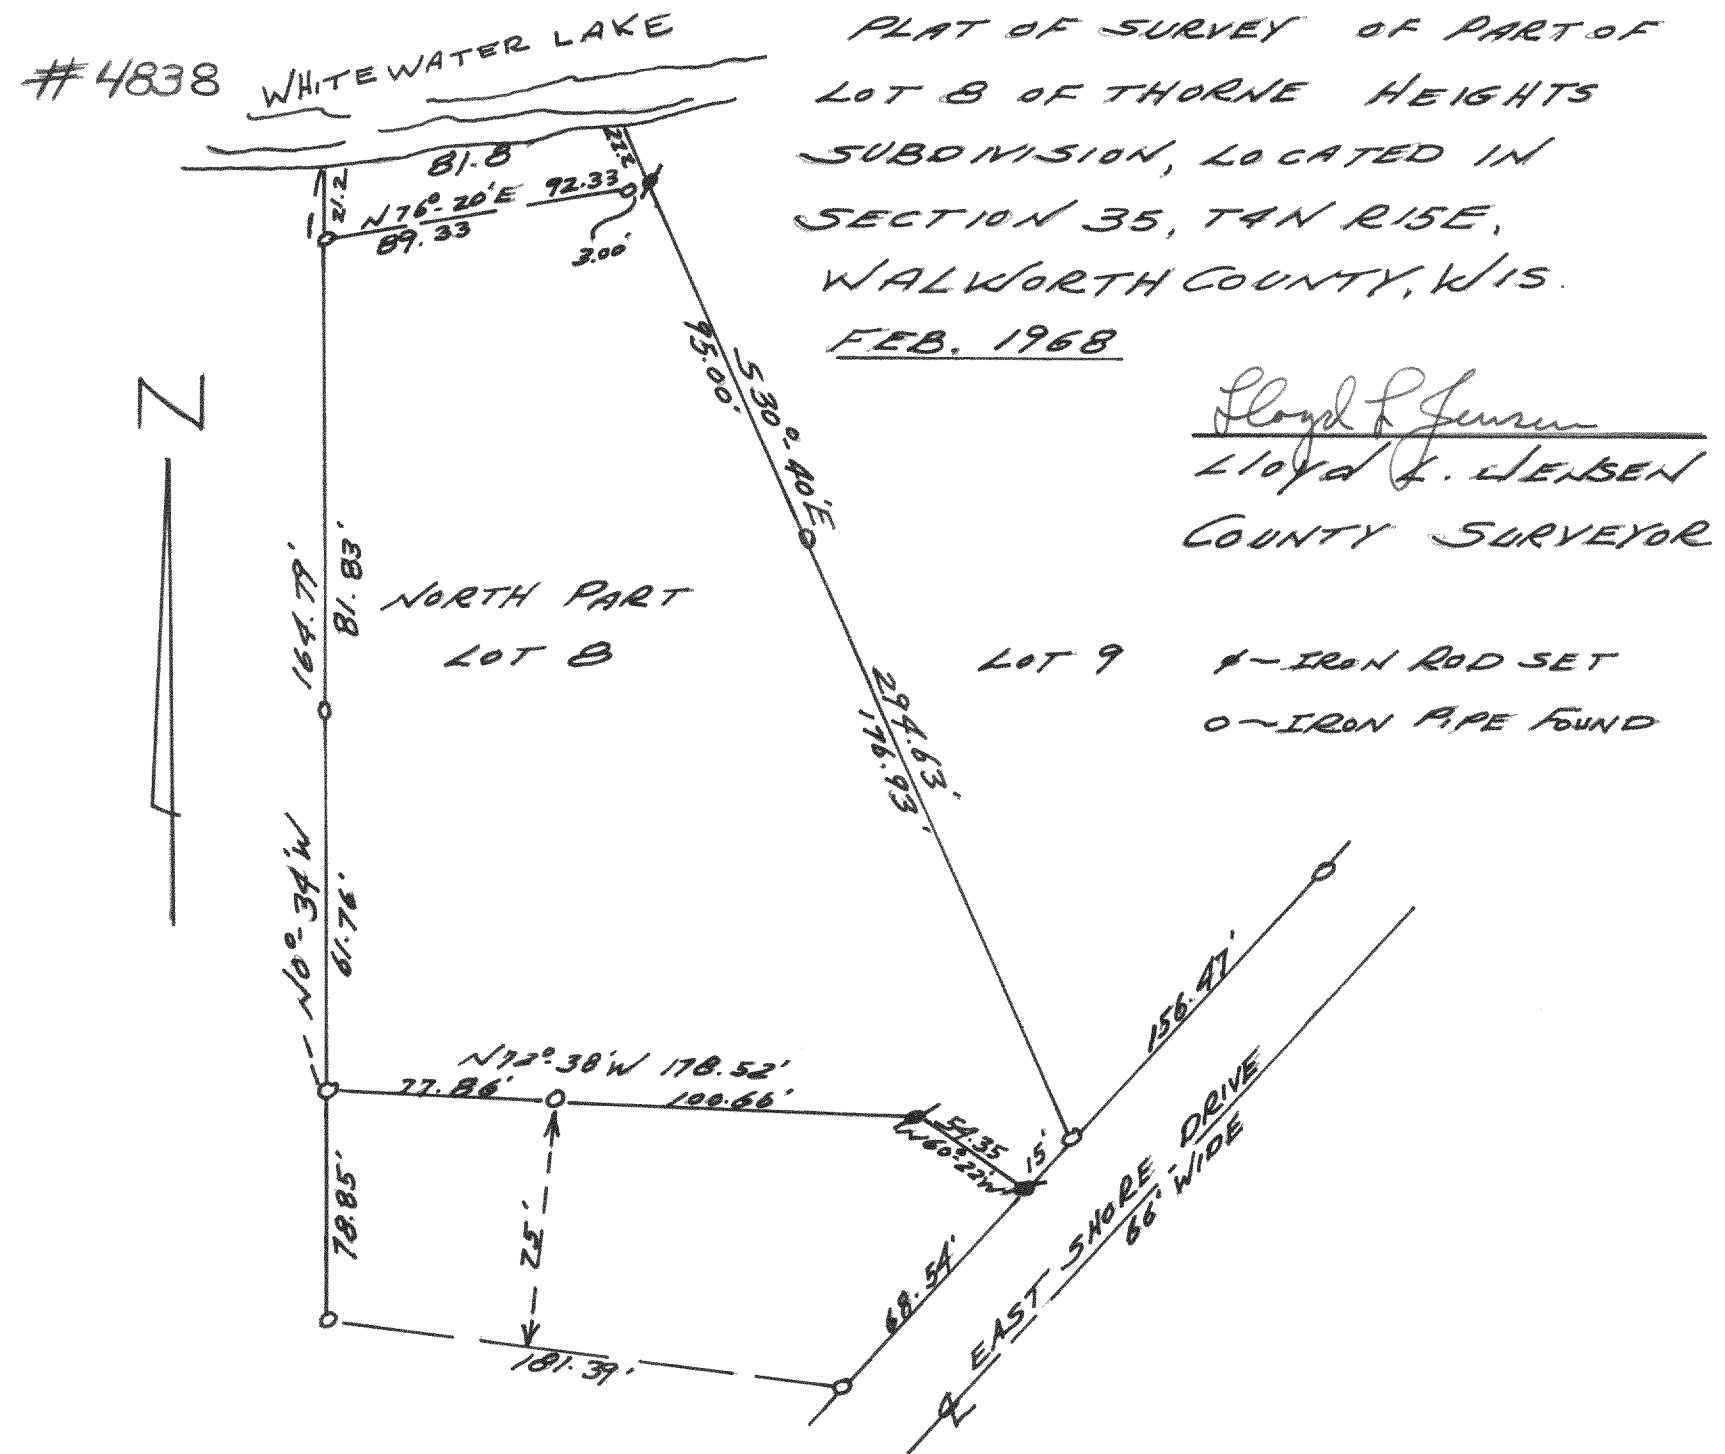 #4838
WHITEWATER LAKE
PLAT OF SURVEY OF PART OF
LOT 8 OF THORNE HEIGHTS
SUBDIVISION, LOCATED IN
SECTION 35, T4N R15E,
WALWORTH COUNTY, WIS.
FEB. 1968
Lloyd L Jensen
Lloyd L. JENSEN
COUNTY SURVEYOR
81.8
22.2
21.2
N76°-20'E 92.33'
89.33
3.00'
N
S30°-40'E
95.00'
164.79'
81.83'
NORTH PART
LOT 8
LOT 9
ø-IRON ROD SET
o-IRON PIPE FOUND
294.63'
176.93'
N0°-34'W
61.76'
156.47'
N72°-38'W 178.52'
77.86' 100.66'
54.35
N60°-22'W
15'
78.85'
75'
68.54'
181.39'
EAST SHORE DRIVE
66' WIDE